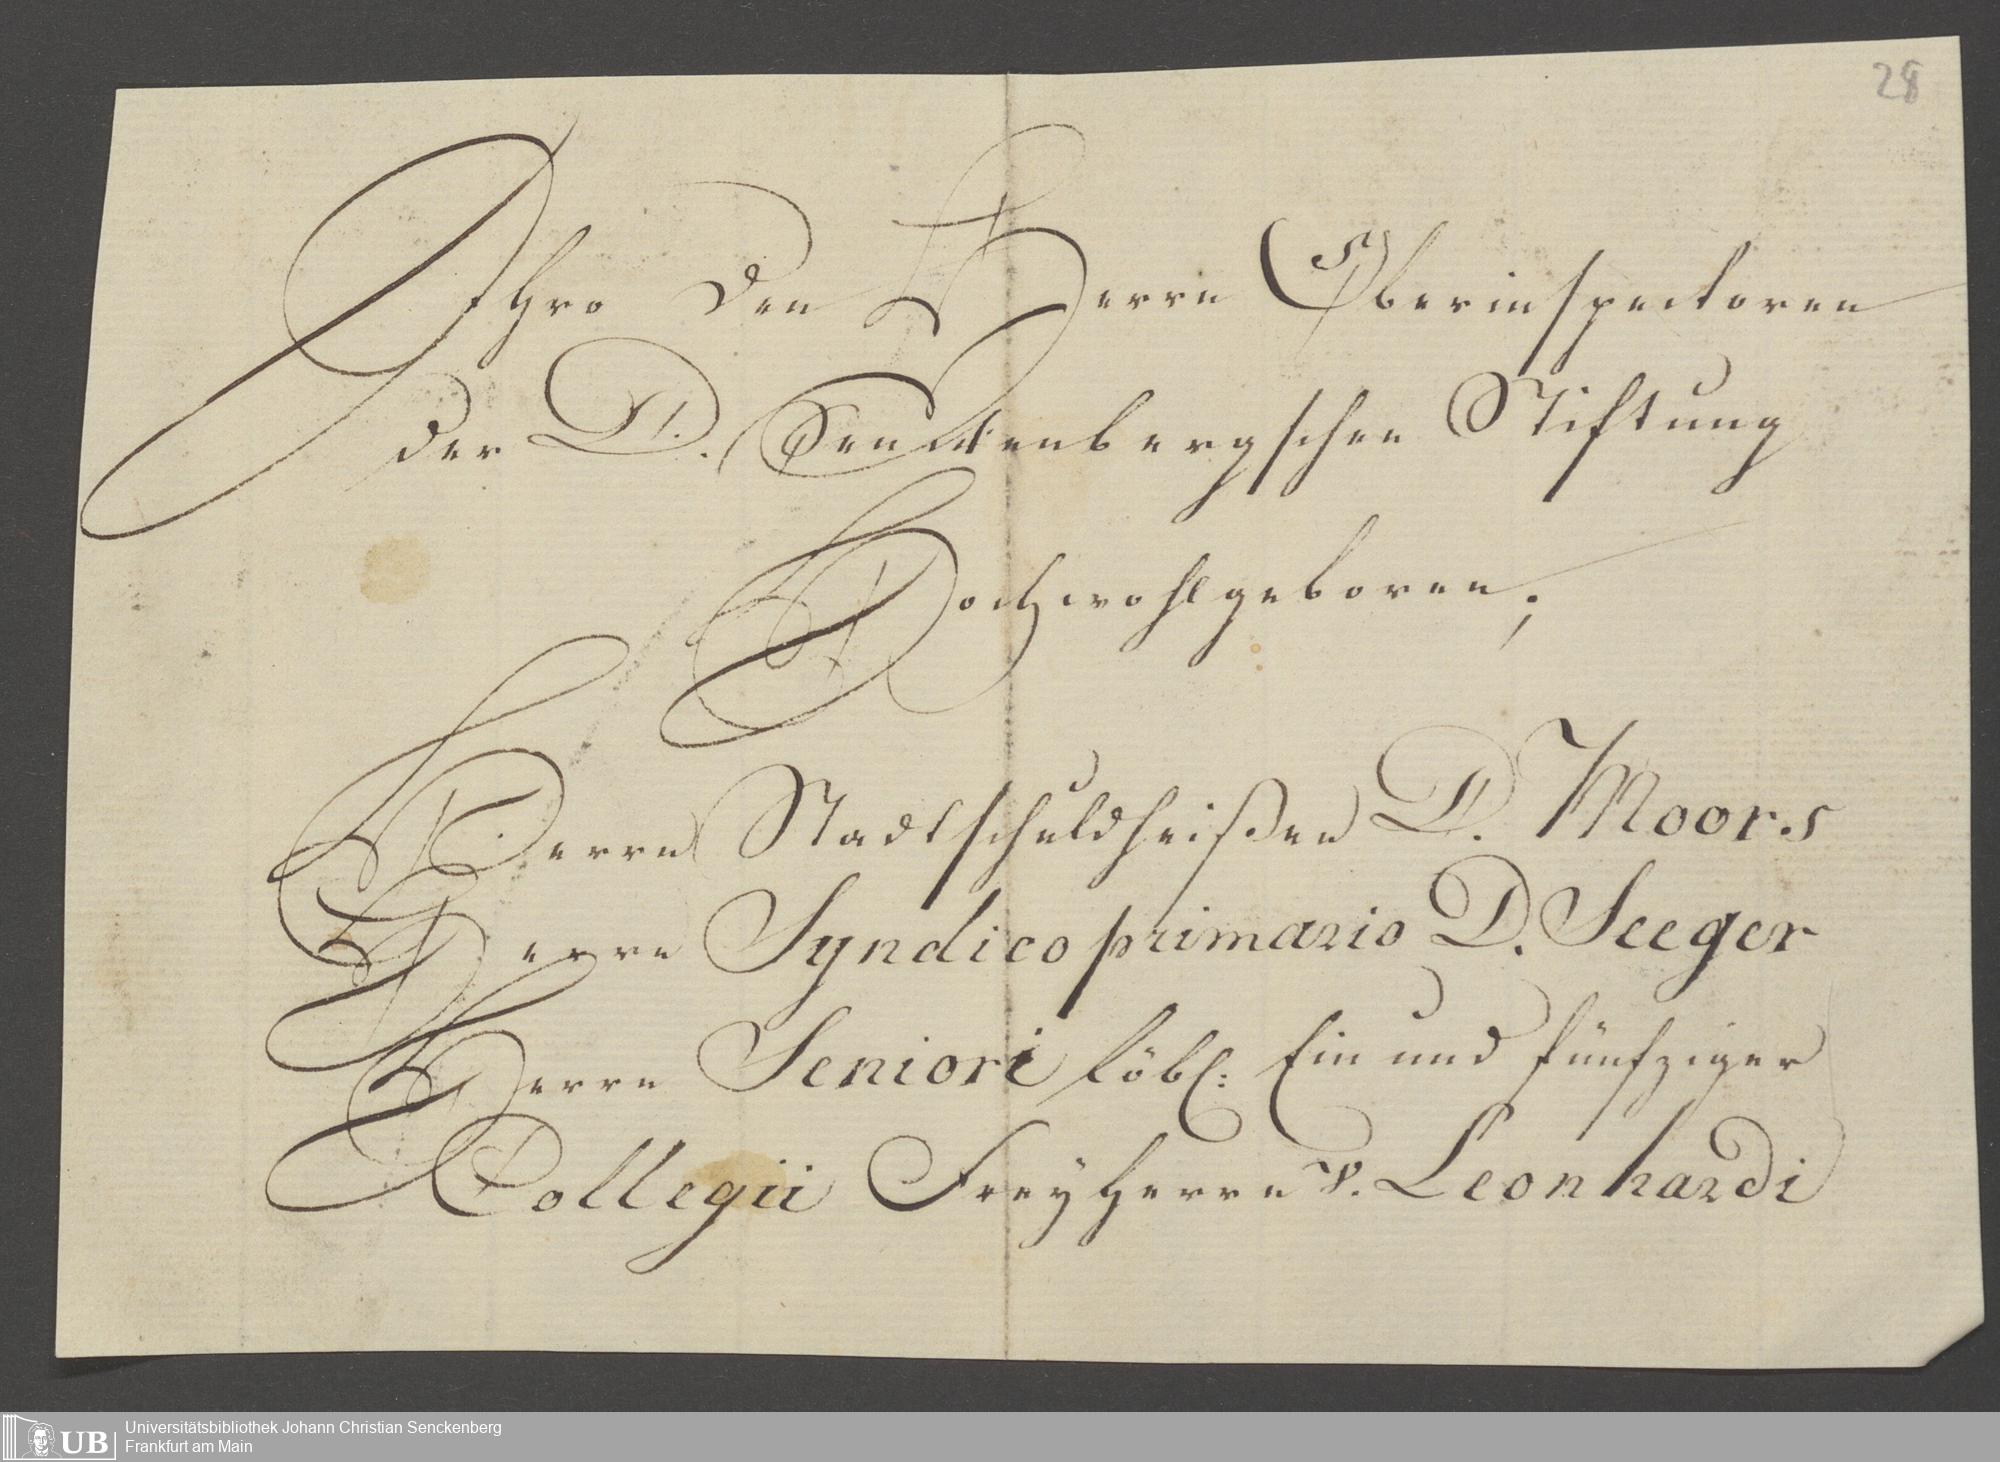 28
Ihro den Herrn Oberinspectoren
der D. Senckenbergschen Stiftung
Hochwohlgeboren;
Herrn Stadtschuldheißen D. Moors
Herrn Syndico primario D. Seeger
Herrn Seniori löbl: Ein und fünfziger
Collegii Freyherrn v. Leonhardi
UB
Universitätsbibliothek Johann Christian Senckenberg
Frankfurt am Main